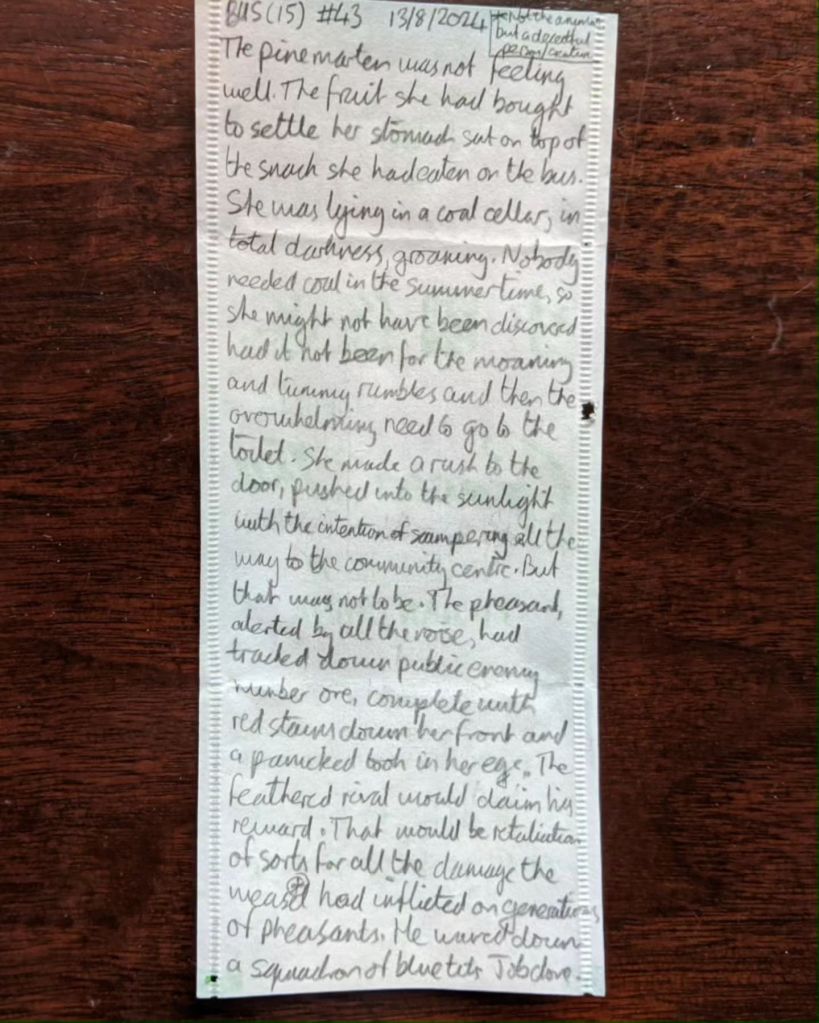 BUS (15) #43 13/8/2024
* Not the animal
but a deceitful
person/creature
The pine marten was not feeling
well. The fruit she had bought
to settle her stomach sat on top of
the snack she had eaten on the bus.
She was lying in a coal cellar, in
total darkness, groaning. Nobody
needed coal in the summertime, so
she might not have been discovered
had it not been for the moaning
and tummy rumbles and then the
overwhelming need to go to the
toilet. She made a rush to the
door, pushed into the sunlight
with the intention of scampering all the
way to the community centre. But
that was not to be. The pheasant,
alerted by all the noise, had
tracked down public enemy
number one, complete with
red stains down her front and
a panicked look in her eye. The
feathered rival would claim his
reward. That would be retaliation
of sorts for all the damage the
weasel* had inflicted on generations
of pheasants. He waved down
a squadron of blue tits. Job done.